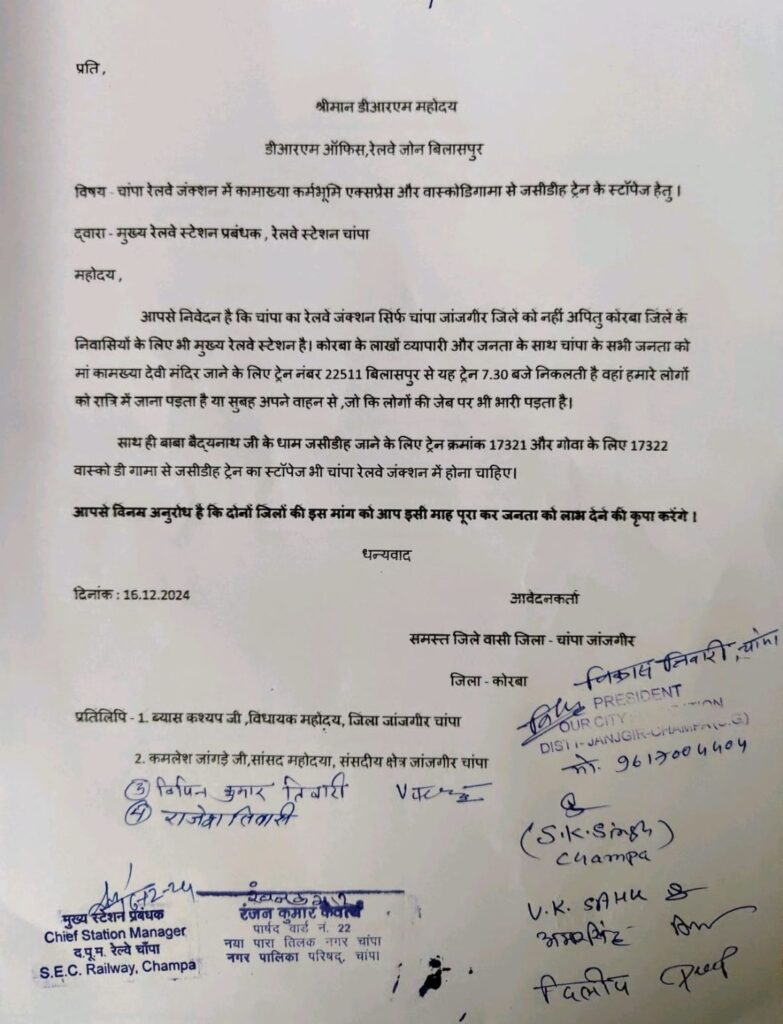 प्रति ,
श्रीमान डीआरएम महोदय
डीआरएम ऑफिस,रेलवे जोन बिलासपुर
विषय - चांपा रेलवे जंक्शन में कामाख्या कर्मभूमि एक्सप्रेस और वास्कोडिगामा से जसीडीह ट्रेन के स्टॉपेज हेतु ।
द्वारा - मुख्य रेलवे स्टेशन प्रबंधक , रेलवे स्टेशन चांपा
महोदय ,
आपसे निवेदन है कि चांपा का रेलवे जंक्शन सिर्फ चांपा जांजगीर जिले को नहीं अपितु कोरबा जिले के
निवासियों के लिए भी मुख्य रेलवे स्टेशन है। कोरबा के लाखों व्यापारी और जनता के साथ चांपा के सभी जनता को
मां कामख्या देवी मंदिर जाने के लिए ट्रेन नंबर 22511 बिलासपुर से यह ट्रेन 7.30 बजे निकलती है वहां हमारे लोगों
को रात्रि में जाना पड़ता है या सुबह अपने वाहन से ,जो कि लोगों की जेब पर भी भारी पड़ता है।
साथ ही बाबा बैद्यनाथ जी के धाम जसीडीह जाने के लिए ट्रेन क्रमांक 17321 और गोवा के लिए 17322
वास्को डी गामा से जसीडीह ट्रेन का स्टॉपेज भी चांपा रेलवे जंक्शन में होना चाहिए।
आपसे विनम्र अनुरोध है कि दोनों जिलों की इस मांग को आप इसी माह पूरा कर जनता को लाभ देने की कृपा करेंगे ।
धन्यवाद
दिनांक : 16.12.2024
आवेदनकर्ता
समस्त जिले वासी जिला - चांपा जांजगीर
जिला - कोरबा
विकास तिवारी, चांपा
PRESIDENT
OUR CITY
DIST.-JANJGIR-CHAMPA(C.G)
मो. 9617004404
प्रतिलिपि - 1. ब्यास कश्यप जी ,विधायक महोदय, जिला जांजगीर चांपा
2. कमलेश जांगड़े जी,सांसद महोदया, संसदीय क्षेत्र जांजगीर चांपा
③ विपिन कुमार तिवारी
④ राजेश तिवारी
(S.K.Singh)
Champa
V.K. SAHU
अमरसिंह
दिलीप
मुख्य स्टेशन प्रबंधक
Chief Station Manager
द.पू.म. रेल्वे चाँपा
S.E.C. Railway, Champa
रंजन कुमार कैवर्त्य
पार्षद वार्ड नं. 22
नया पारा तिलक नगर चांपा
नगर पालिका परिषद्, चांपा